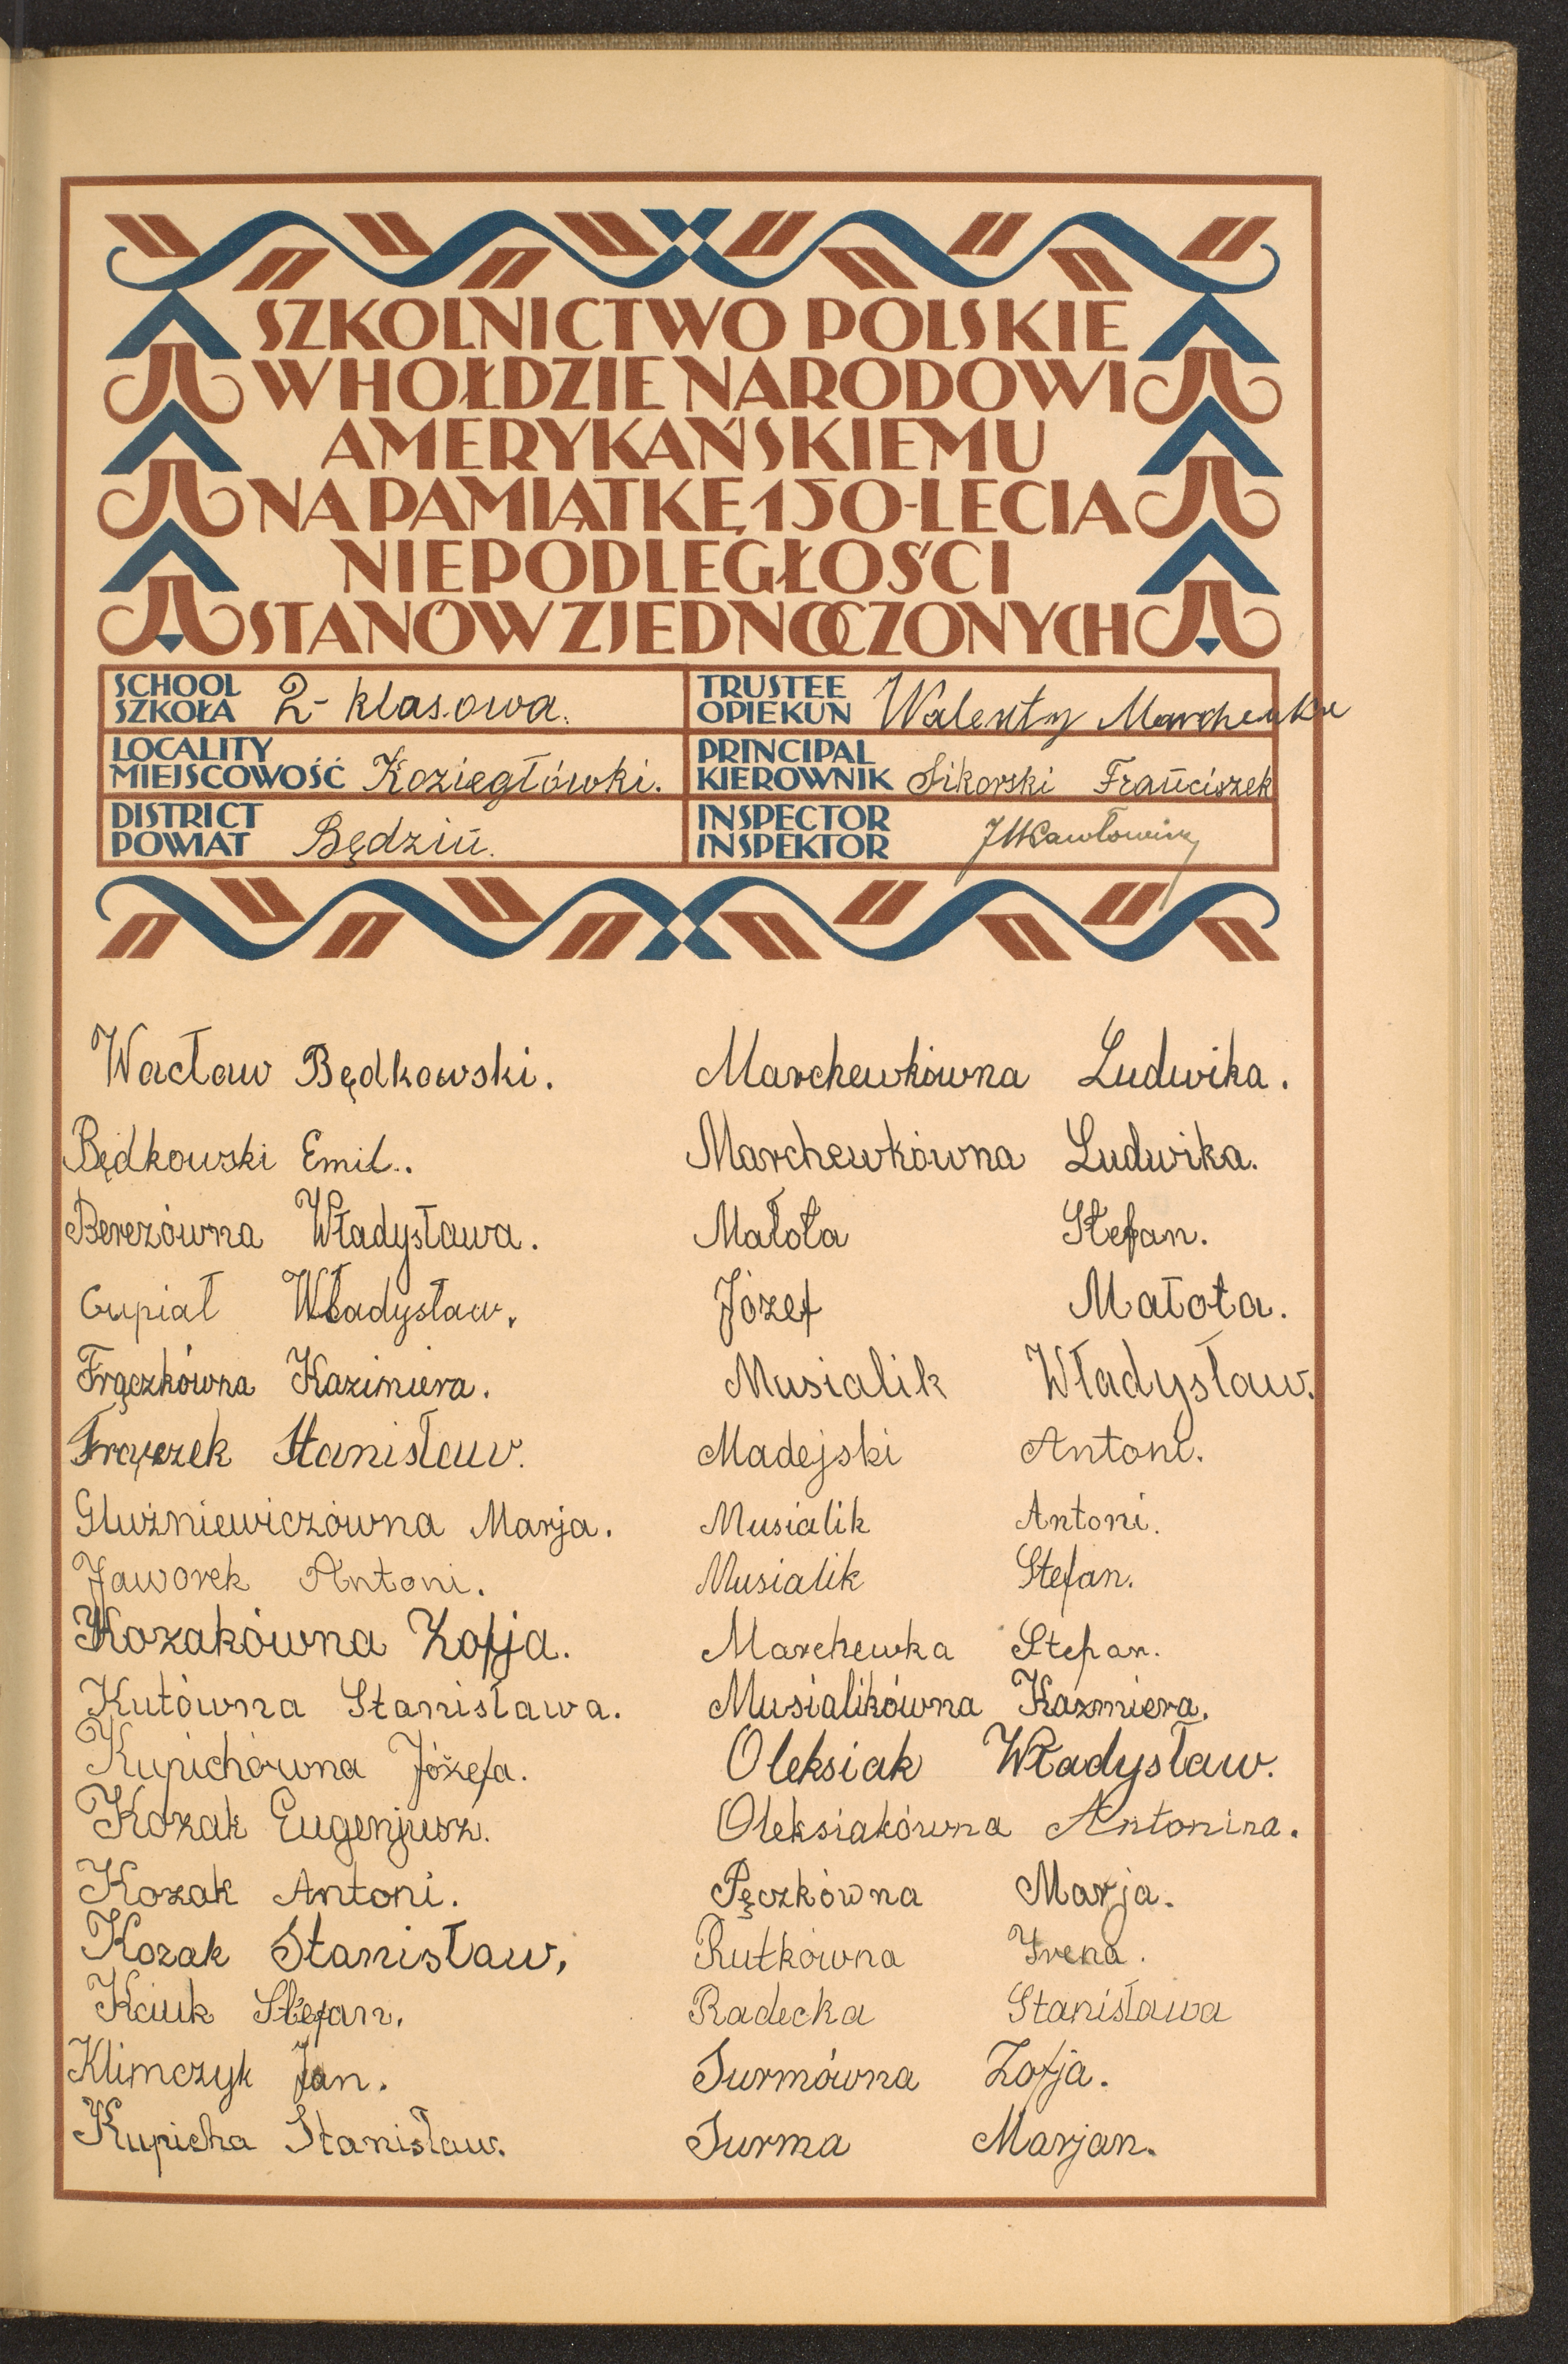 SZKOLNICTWO POLSKIE
W HOŁDZIE NARODOWI
AMERYKAŃSKIEMU
NA PAMIĄTKĘ 150-LECIA
NIEPODLEGŁOŚCI
STANÓW ZJEDNOCZONYCH
SCHOOL
SZKOŁA 2-klasowa.
TRUSTEE
OPIEKUN Walenty Marchewka
LOCALITY
MIEJSCOWOŚĆ Koziegłówki.
PRINCIPAL
KIEROWNIK Sikorski Franciszek
DISTRICT
POWIAT Będzin.
INSPECTOR
INSPEKTOR
Wacław Będkowski.
Będkowski Emil.
Berezówna Władysława.
Cupiał Władysław.
Frączkówna Kazimiera.
Frączek Stanisław.
Gluźniewiczówna Marja.
Jaworek Antoni.
Kozakówna Zofja.
Kutówna Stanisława.
Kupichówna Józefa.
Kozak Eugenjusz.
Kozak Antoni.
Kozak Stanisław,
Kciuk Stefan.
Klimczyk Jan.
Kupicha Stanisław.
Marchewkówna Ludwika.
Marchewkówna Ludwika.
Małota Stefan.
Józef Małota.
Musialik Władysław.
Madejski Antoni.
Musialik Antoni.
Musialik Stefan.
Marchewka Stefan.
Musialikówna Kaźmiera.
Oleksiak Władysław.
Oleksiakówna Antonina.
Pęczkówna Marja.
Rutkówna Irena.
Radecka Stanisława
Surmówna Zofja.
Surma Marjan.